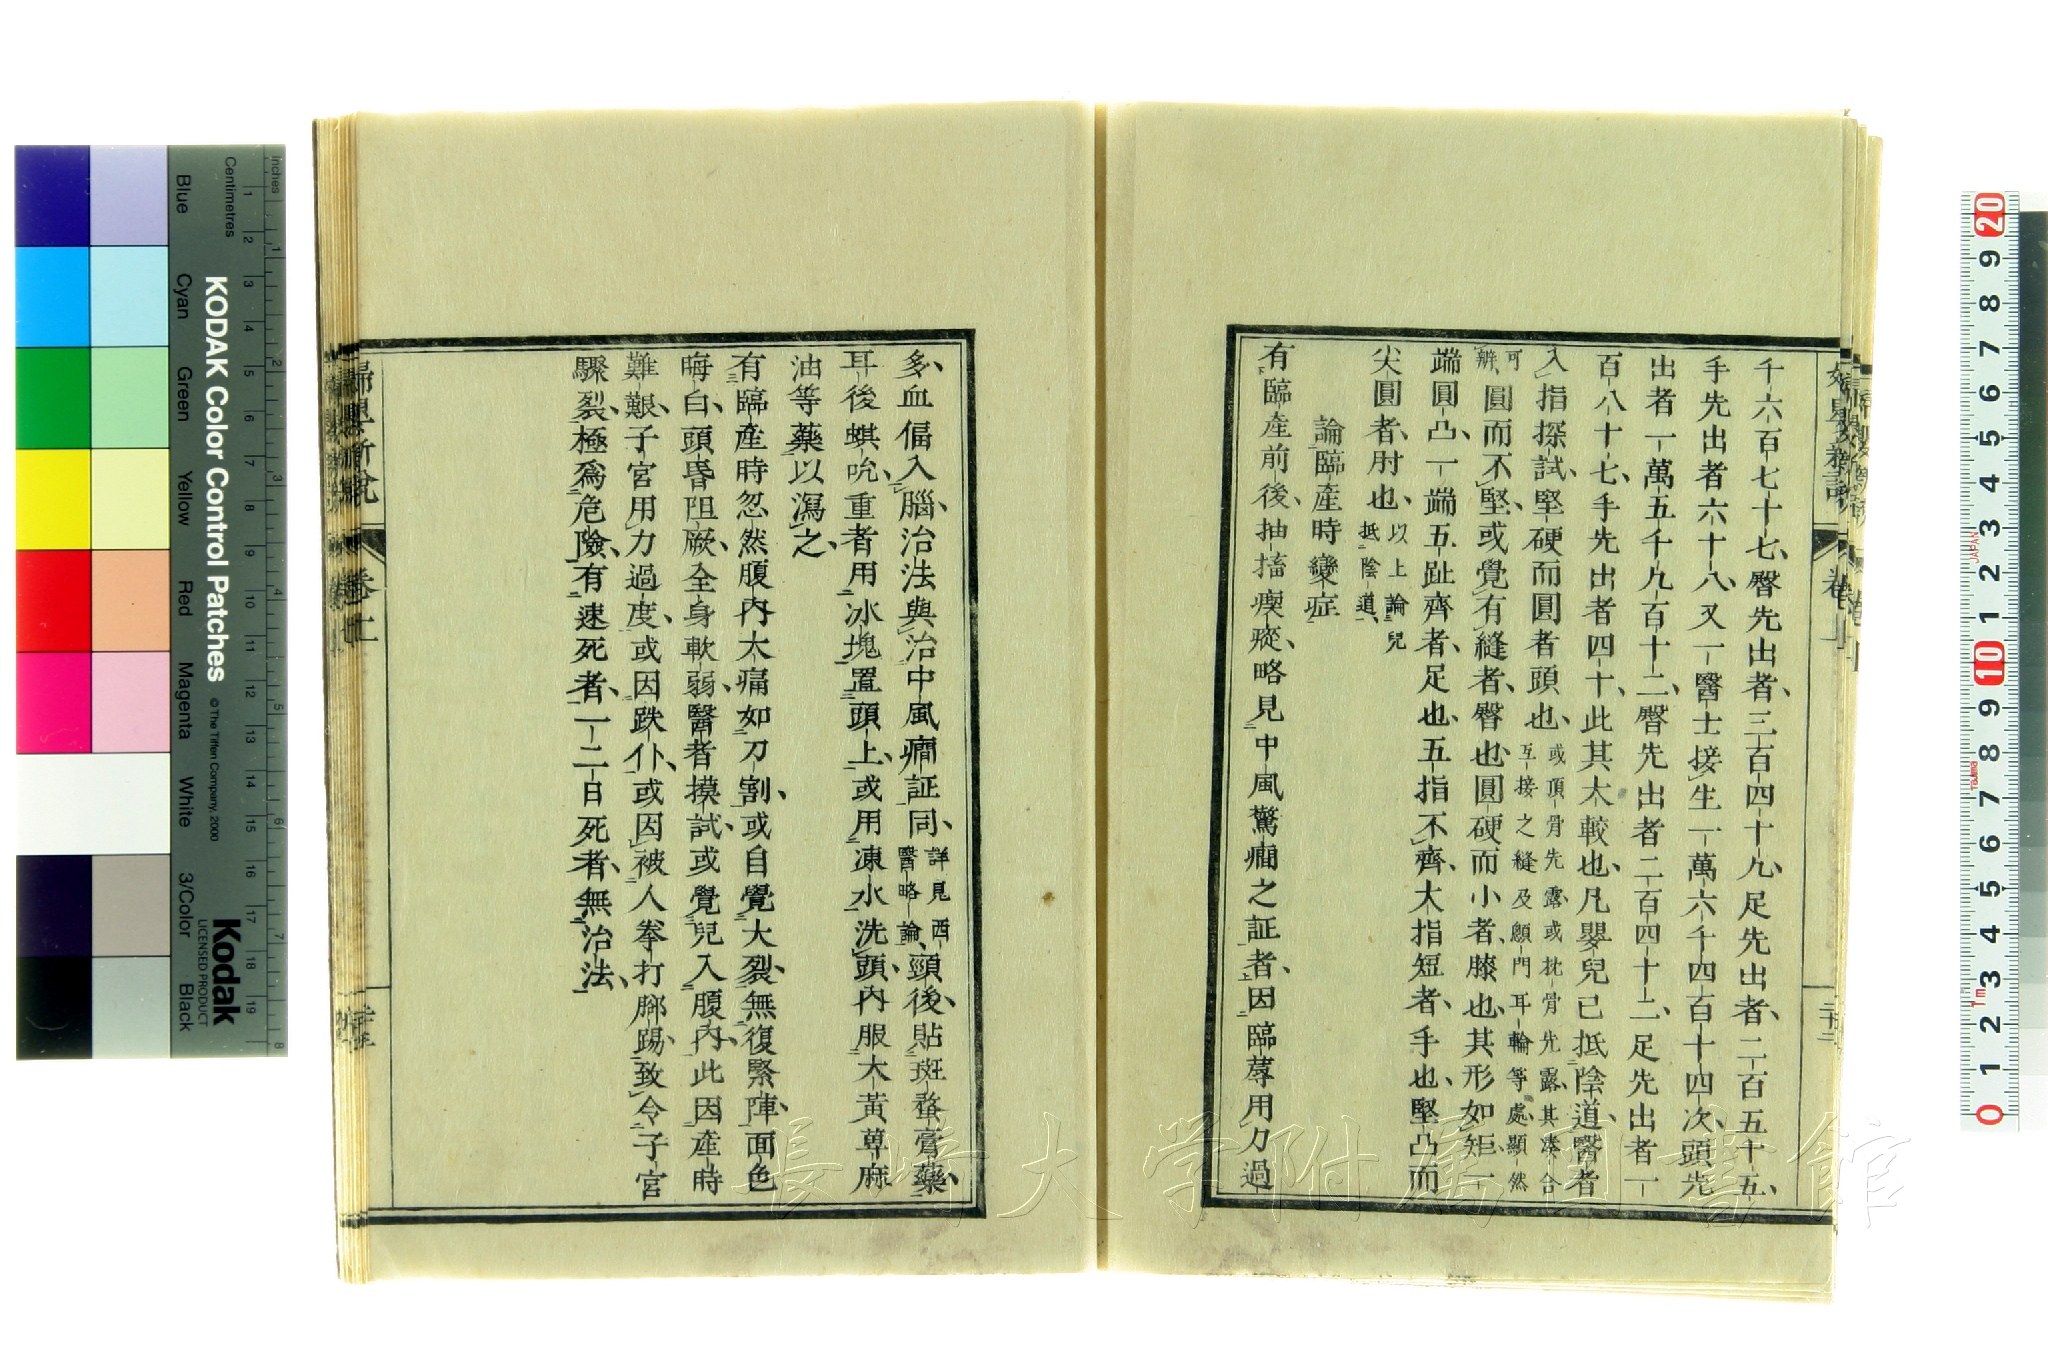 千六百七十七、臀先出者、三百四十九、足先出者、二百五十五、
手先出者六十八、又一醫士接生一萬六千四百十四次、頭先
出者一萬五千九百十二、臀先出者二百四十二、足先出者一
百八十七、手先出者四十、此其大較也、凡嬰兒已抵陰道、醫者
入指探試、堅硬而圓者頭也、或頂骨先露、或枕骨先露、其湊合
互接之縫、及顖門耳輪等處、顯然
可
辨、圓而不堅、或覺有縫者、臀也、圓硬而小者、膝也、其形如矩、一
端圓凸、一端五趾齊者、足也、五指不齊、大指短者、手也、堅凸而
尖圓者、肘也、以上論兒
抵陰道、
論臨產時變症
有臨產前後、抽搐瘈瘲、略見中風驚癇之証者、因臨蓐用力過
多、血偪入腦、治法與治中風癇証同、詳見西
醫略論、頸後、貼斑蝥膏藥、
耳後蜞吮、重者用冰塊置頭上、或用凍水洗頭、內服大黃萆麻
油等藥以瀉之、
有臨產時忽然腹內大痛如刀割、或自覺大裂、無復緊陣、面色
晦白、頭昏阻厥、全身軟弱、醫者摸試、或覺兒入腹內、此因產時
難艱、子宮用力過度、或因跌仆、或因被人拳打腳踢、致令子宮
驟裂、極爲危險、有速死者、一二日死者、無治法、
婦嬰新說
卷上
二十二
長崎大学附属図書館
KODAK Color Control Patches
© The Tiffen Company, 2000
Kodak
LICENSED PRODUCT
Centimetres
Inches
Blue
Cyan
Green
Yellow
Red
Magenta
White
3/Color
Black